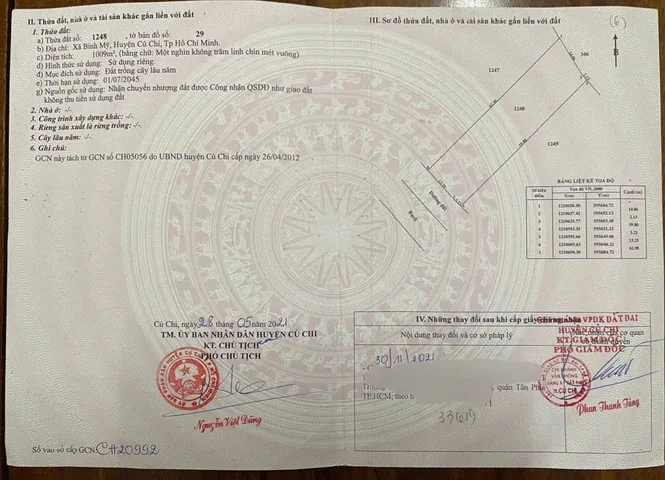 II. Thửa đất, nhà ở và tài sản khác gắn liền với đất
1. Thửa đất:
a) Thửa đất số: 1248, tờ bản đồ số: 29
b) Địa chỉ: Xã Bình Mỹ, Huyện Củ Chi, Tp Hồ Chí Minh.
c) Diện tích: 1009m², (bằng chữ: Một nghìn không trăm linh chín mét vuông)
d) Hình thức sử dụng: Sử dụng riêng.
đ) Mục đích sử dụng: Đất trồng cây lâu năm
e) Thời hạn sử dụng: 01/07/2045.
g) Nguồn gốc sử dụng: Nhận chuyển nhượng đất được Công nhận QSDĐ như giao đất
không thu tiền sử dụng đất
2. Nhà ở: -/-.
3. Công trình xây dựng khác: -/-.
4. Rừng sản xuất là rừng trồng: -/-.
5. Cây lâu năm: -/-.
6. Ghi chú:
GCN này tách từ GCN số CH05056 do UBND huyện Củ Chi cấp ngày 26/04/2012
Củ Chi, ngày 28 tháng 05 năm 2021
TM. ỦY BAN NHÂN DÂN HUYỆN CỦ CHI
KT. CHỦ TỊCH
PHÓ CHỦ TỊCH
Nguyễn Việt Dũng
Số vào sổ cấp GCN: CH20992
III. Sơ đồ thửa đất, nhà ở và tài sản khác gắn liền với đất
(6)
B
1247
346
1248
1249
Đường đất
Rạch
BẢNG LIỆT KÊ TỌA ĐỘ
Số hiệu điểm
Tọa độ VN_2000
X(m)
Y(m)
Cạnh (m)
IV. Những thay đổi sau khi cấp giấy chứng nhận
Nội dung thay đổi và cơ sở pháp lý
CHI NHÁNH VPĐK ĐẤT ĐAI
HUYỆN CỦ CHI
KT. GIÁM ĐỐC
PHÓ GIÁM ĐỐC
30/11/2021
quận Tân Phú
TP.HCM; theo h
H. CỦ CHI
Phan Thanh Tùng